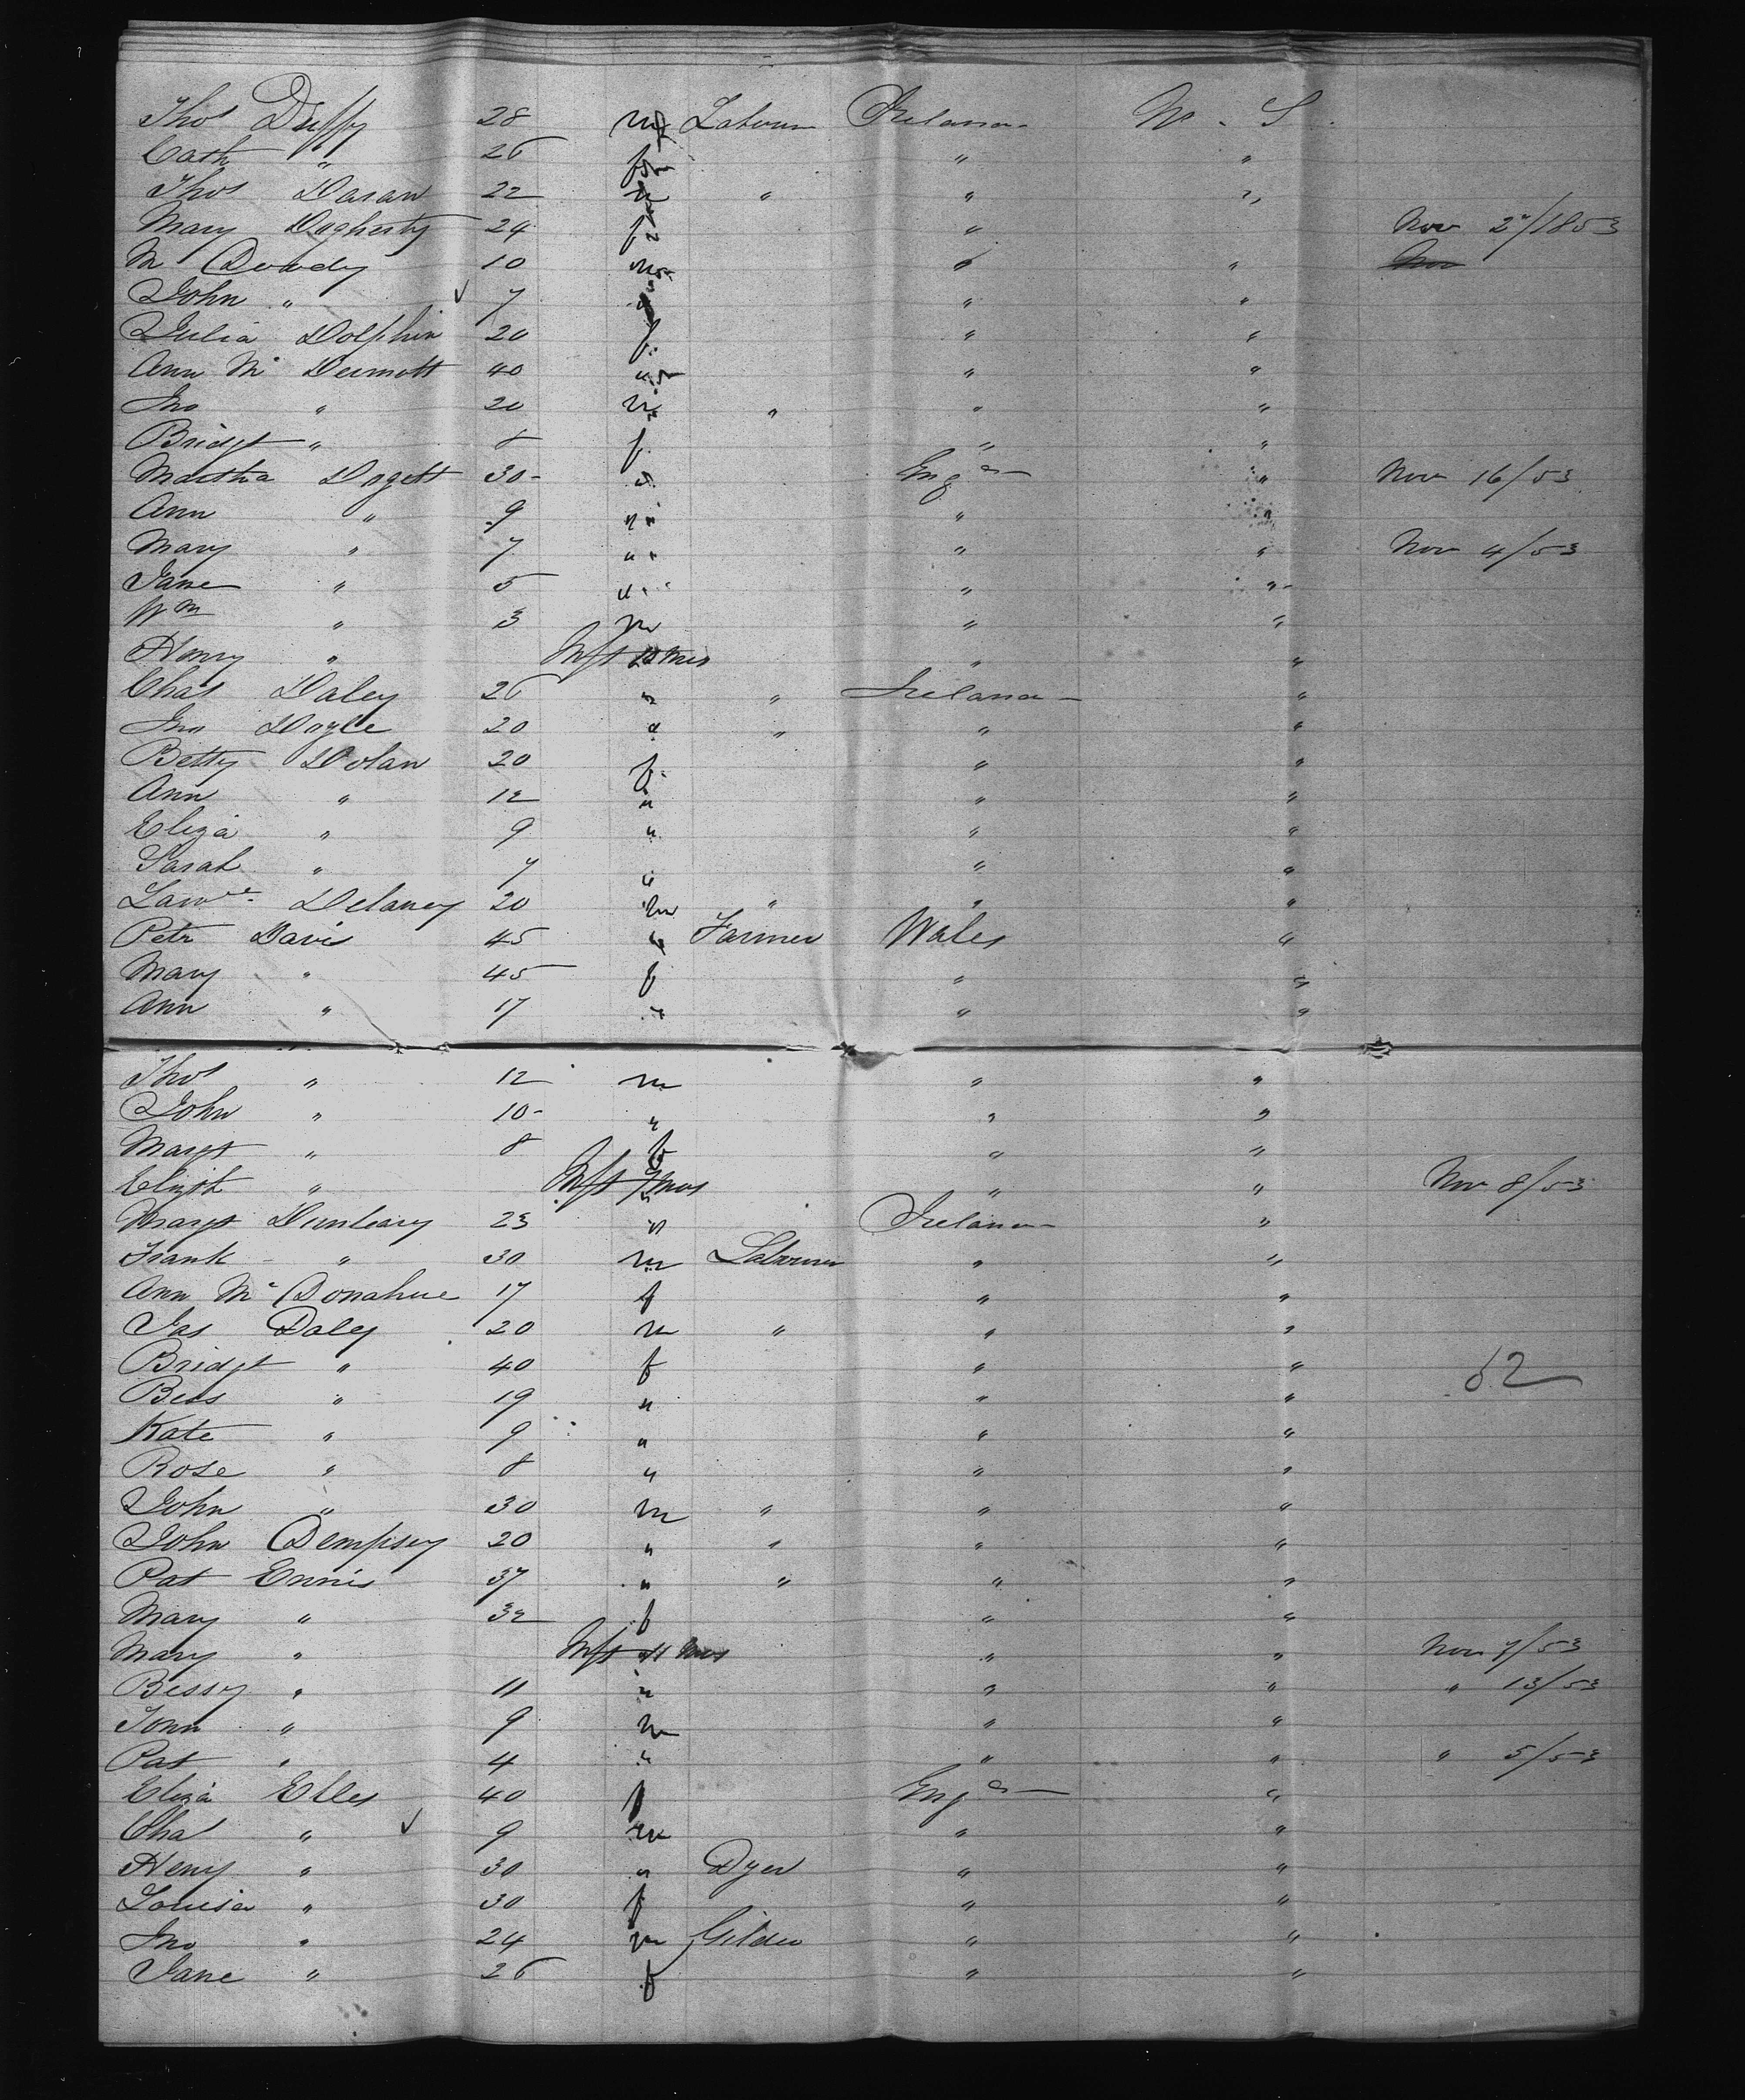 Thos Duffy 28 m Labourer Ireland U. S.
Cath " 26 f " "
Thos Daran 22 " " " "
Mary Dogherty 24 f " Nov 2"/1853
M Dowdy 10 m " "
John " 7 " " "
Julia Dolphin 20 f " "
Ann Mc Dermott 40 " " "
Jno " 20 m " " "
Bridgt " 8 f " "
Martha Dogett 30 " Engd " Nov 16/53
Ann " 9 " " "
Mary " 7 " " " Nov 4/53
Jane " 5 " " "
Wm " 3 m " "
Henry " Inft mos " "
Chas Daley 26 " " Ireland "
Jno Doyle 20 " " " "
Betty Dolan 20 f " "
Ann " 12 " " "
Eliza " 9 " " "
Sarah " 7 " " "
Lawce Delaney 20 m " " "
Petr Davis 45 " Farmer Wales "
Mary " 45 f " "
Ann " 17 " " "
Thos " 12 m " "
John " 10 " " "
Margt " 8 f " "
Elizth " Inft mos " " Nov 8/53
Margt Dunleavy 23 " Ireland "
Frank " 30 m Labourer " "
Ann Mc Donahue 17 f " "
Jas Daley 20 m " " "
Bridgt " 40 f " "
Bess " 19 " " " 62
Kate " 9 " " "
Rose " 8 " " "
John " 30 m " " "
John Dempsey 20 " " " "
Pat Ennis 37 " " " "
Mary " 32 f " "
Mary " Inft 11 mos " " Nov 7/53
Bessy " 11 " " " " 13/53
John " 9 m " "
Pat " 4 " " " " 5/53
Eliza Elles 40 f Engd "
Chas " 9 m " "
Heny " 30 " Dyer " "
Louisa " 30 f " "
Jno " 24 m Gilder " "
Jane " 26 f " "